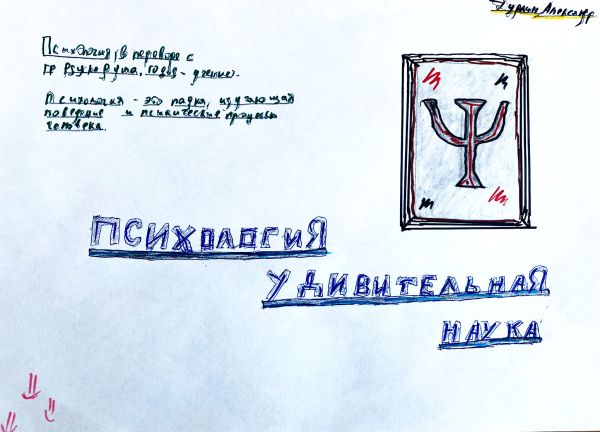 Дурнин Александр
Психология, в переводе с
душа, - учение.
Психология - это наука, изучающая
поведение и психические процессы
человека.
Ψ
ПСИХОЛОГИЯ
УДИВИТЕЛЬНАЯ
НАУКА